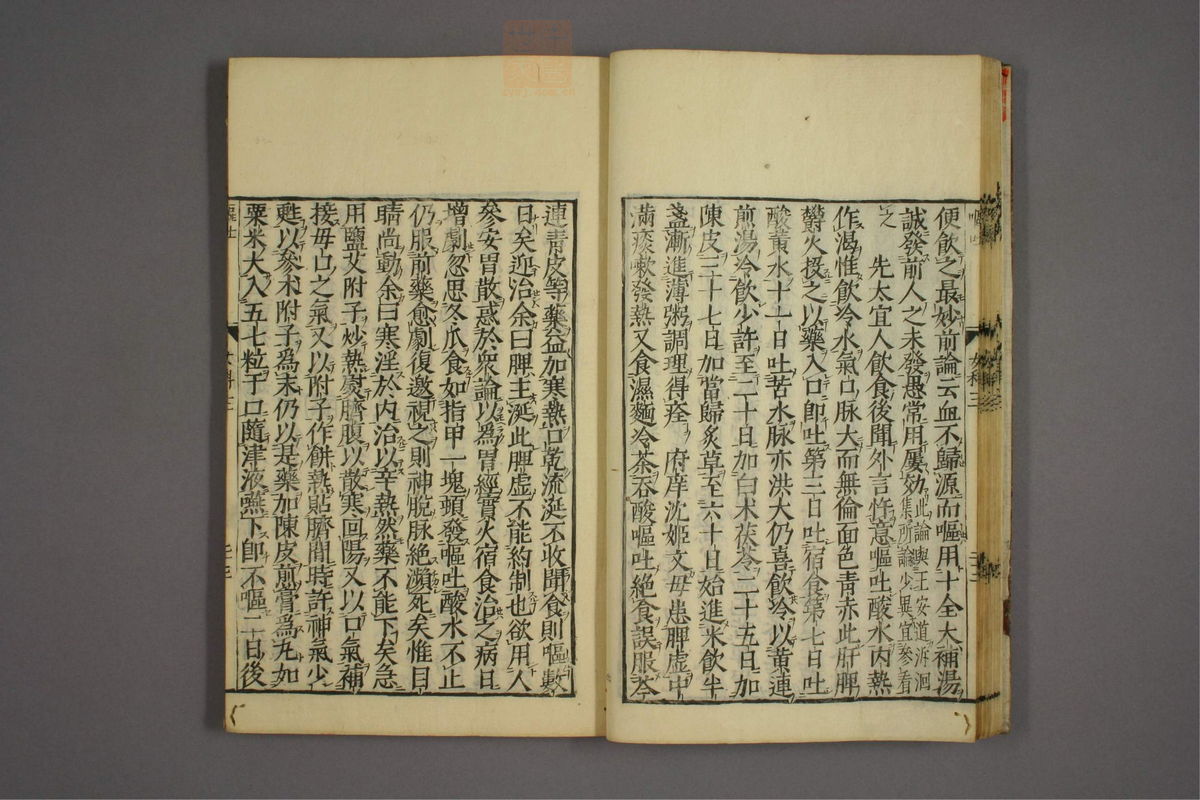 便飲之最妙前論云血不歸源而嘔用十全大補湯
誠發前人之未發愚常用屢効此論與王安道泝洄集所論少異宜參看
之　先太宜人飲食後聞外言忤意嘔吐酸水内熱
作渴惟飲冷水氣口脉大而無倫面色青赤此肝脾
欝火投之以藥入口即吐第三日吐宿食第七日吐
酸黄水十一日吐苦水脉亦洪大仍喜飲冷以黄連
煎湯冷飲少許至二十日加白术茯苓二十五日加
陳皮三十七日加當歸炙草至六十日始進米飲半
盞漸進薄粥調理得痊　府庠沈姬文母患脾虚中
滿痰嗽發熱又食濕麵冷茶吞酸嘔吐絶食誤服芩
連青皮等藥益加寒熱口乾流涎不收聞食則嘔數
日矣迎治余曰脾主涎此脾虚不能約制也欲用人
參安胃散惑於衆論以為胃經實火宿食治之病日
增劇忽思冬瓜食如指甲一塊頭發嘔吐酸水不止
仍服前藥愈劇復邀視之則神脫脉絶瀕死矣惟目
睛尚動余曰寒淫於内治以辛熱然藥不能下矣急
用鹽艾附子炒熱熨臍腹以散寒回陽又以口氣補
接母口之氣又以附子作餅熱貼臍間時許神氣少
甦以參术附子爲末仍以是藥加陳皮煎膏爲丸如
粟米大入五七粒于口隨津液嚥下即不嘔二日後
女科三